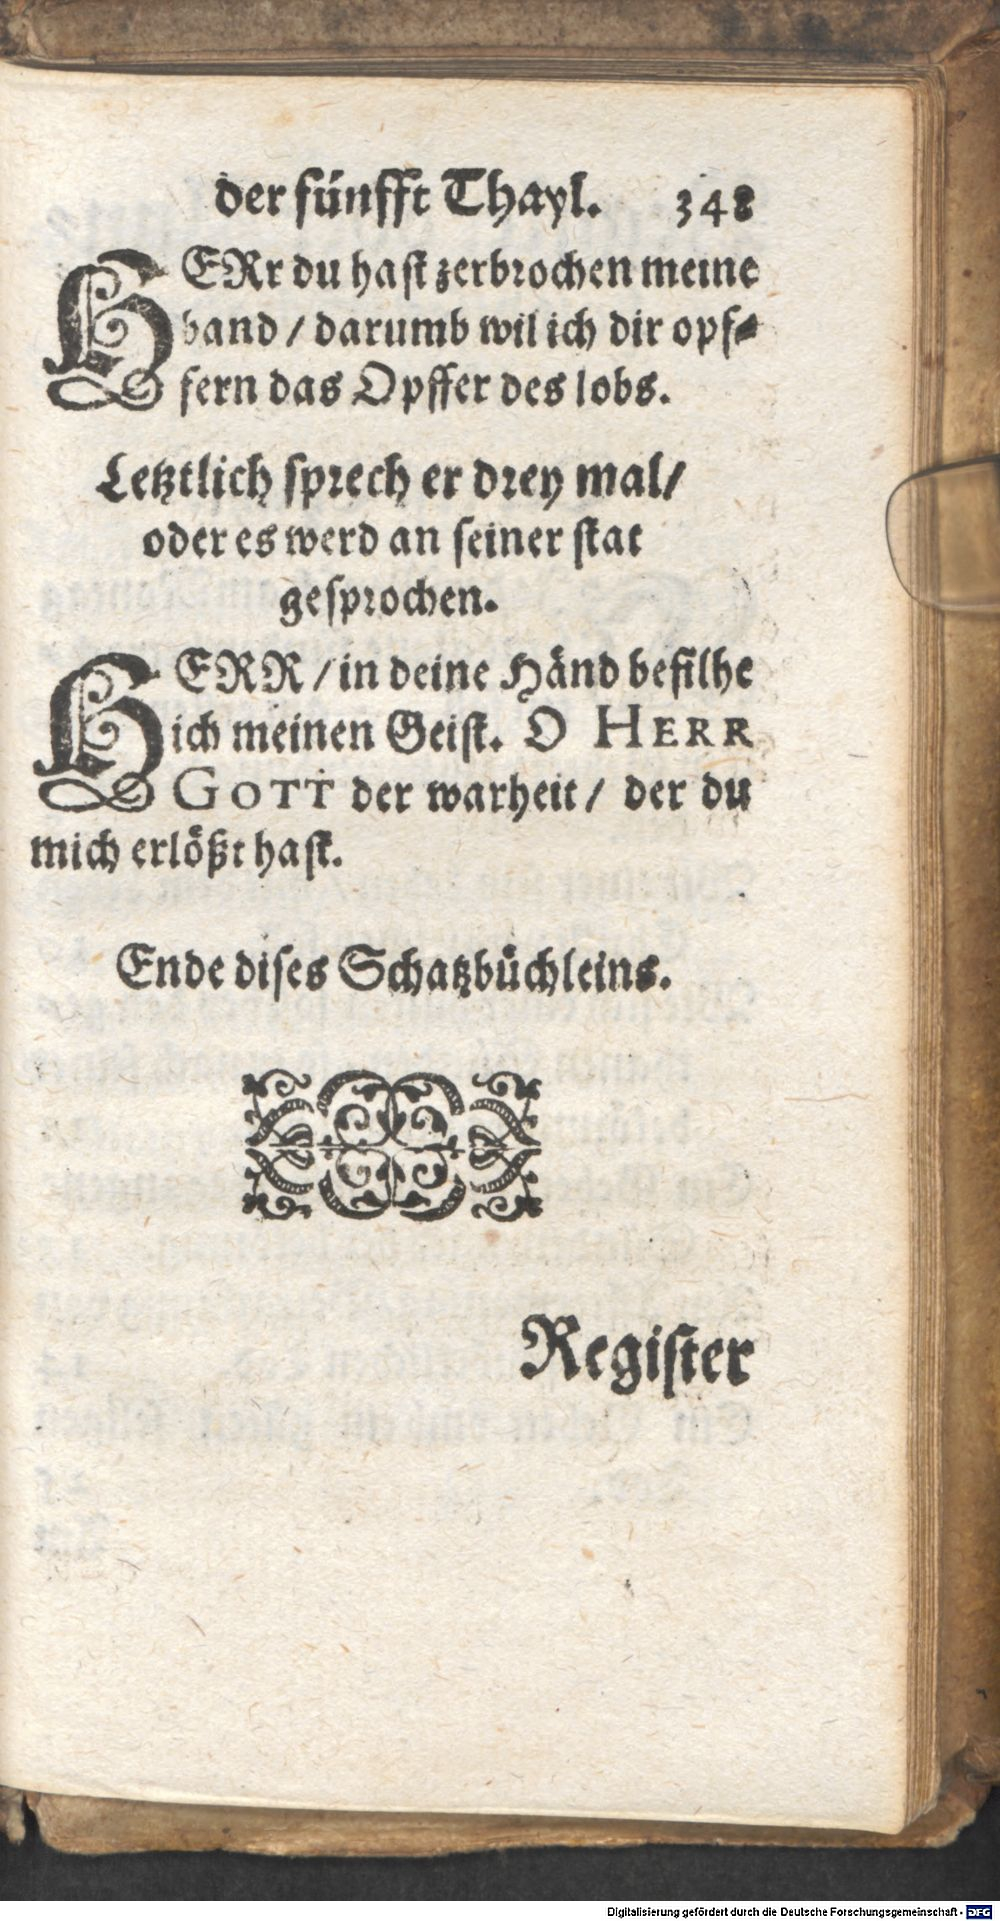 der fünfft Thayl. 348
HERr du hast zerbrochen meine
band / darumb wil ich dir opf-
fern das Opffer des lobs.
Letztlich sprech er drey mal /
oder es werd an seiner stat
gesprochen.
HERR / in deine Händ befilhe
ich meinen Geist. O HERR
GOTT der warheit / der du
mich erlößt hast.
Ende dises Schatzbüchleins.
Register
Digitalisierung gefördert durch die Deutsche Forschungsgemeinschaft - DFG